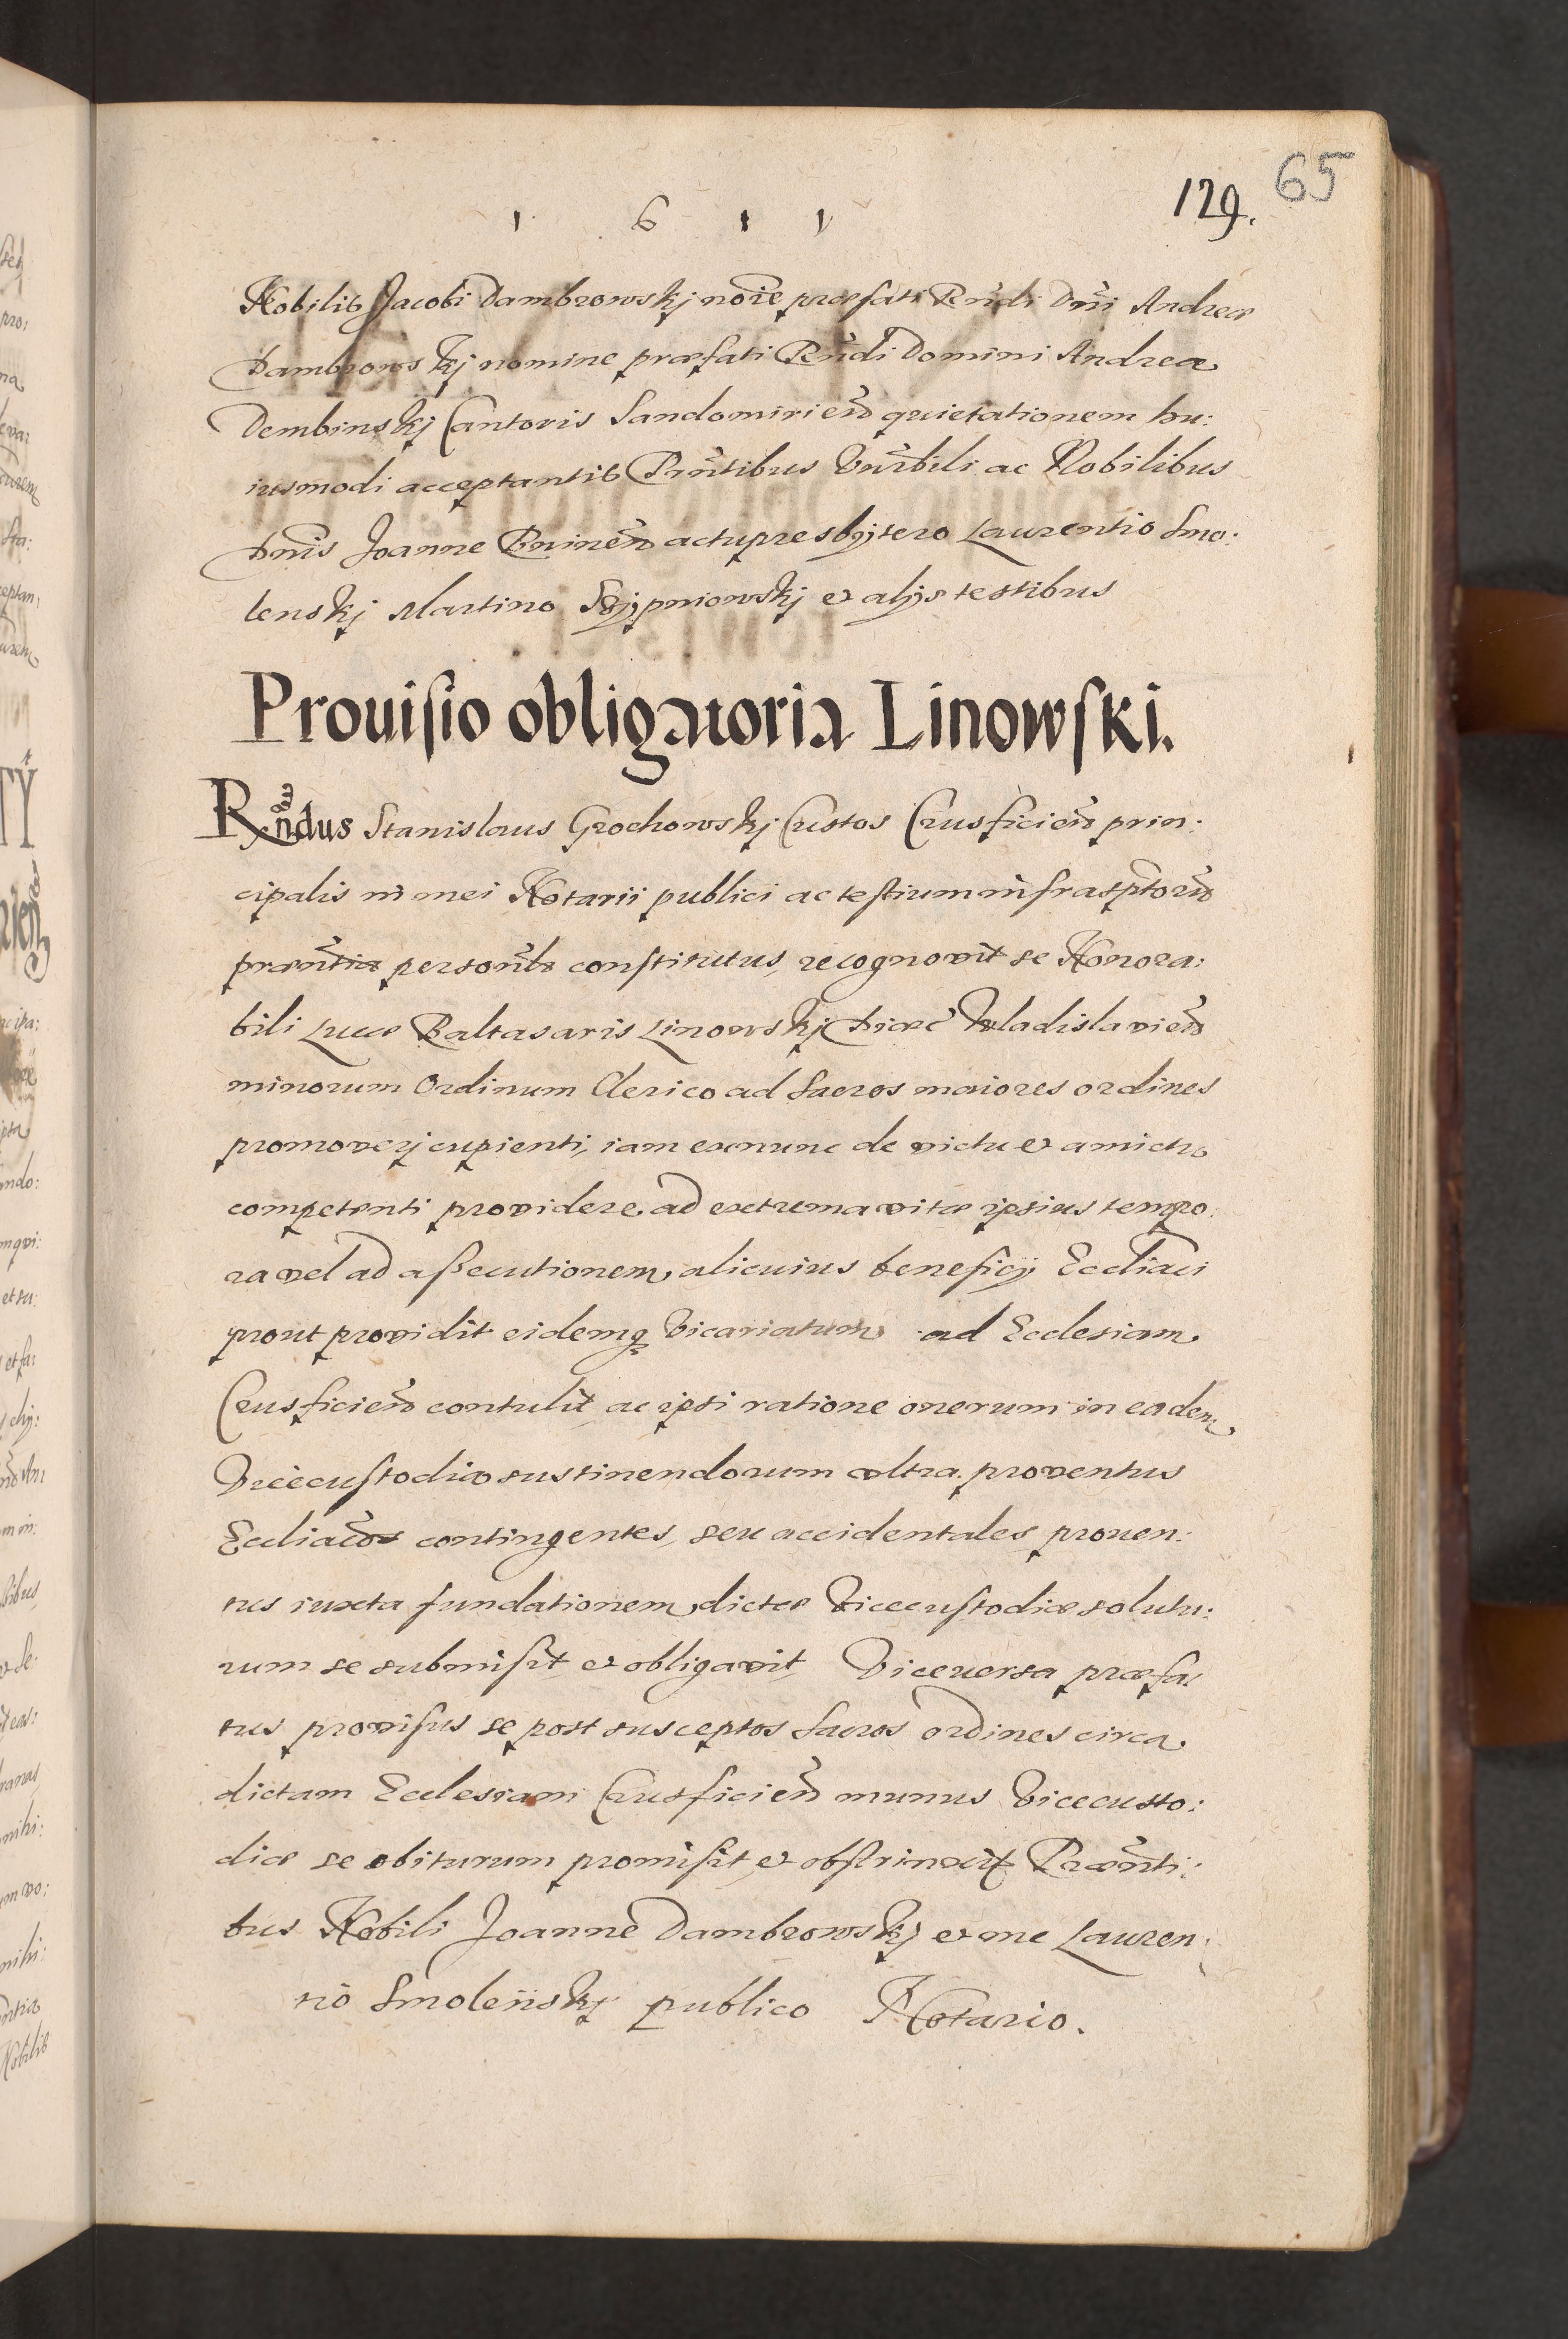 65
129.
1 6 1 1
Nobilis Jacobi Dambrowskj noĩe præfati Rndi Dni Andreæ
Dambrowskj nomine præfati Rndi Domini Andreæ
Dembinskj Cantoris Sandomirien quietationem hu:
iusmodi acceptantis Pñtibus Vnrbili ac Nobilibus
Dnis Joanne actu presbytero Laurentio Smo:
lenskj Martino et alijs testibus
Prouisio obligatoria Linowski.
Rndus Stanislaus Grochowskj Custos Crusficien prin:
cipalis in mei Notarii publici ac testium infrasptorũ
præntia personlr constitutus, recognovit se Honora:
bili Lucæ Baltasaris Linowskj Diæc Wladislavien
minorum Ordinum Clerico ad Sacros maiores ordines
promoverj cupienti, iam ex nunc de victu et amictu
competenti providere ad extrema vitæ ipsius tempo:
ra vel ad aßecutionem alicuius beneficij Eccliaci
prout providit eidemq Vicariatum ad Ecclesiam
Crusficien contulit ac ipsi ratione onerum in eadem
Vicecustodia sustinendorum vltra proventus
contingentes, seu accidentales proven:
tus iuxta fundationem dictæ Vicecustodiæ solutu:
rum se submisit et obligavit, Viceversa præfa:
tus provisus se post susceptos Sacros ordines circa
dictam Ecclesiam Crusficien munus Vicecusto:
diæ se obiturum promisit et obstrinxit Prænti:
bus Nobili Joanne Dambrowskj et me Lauren:
tio Smolenskj publico Notario.